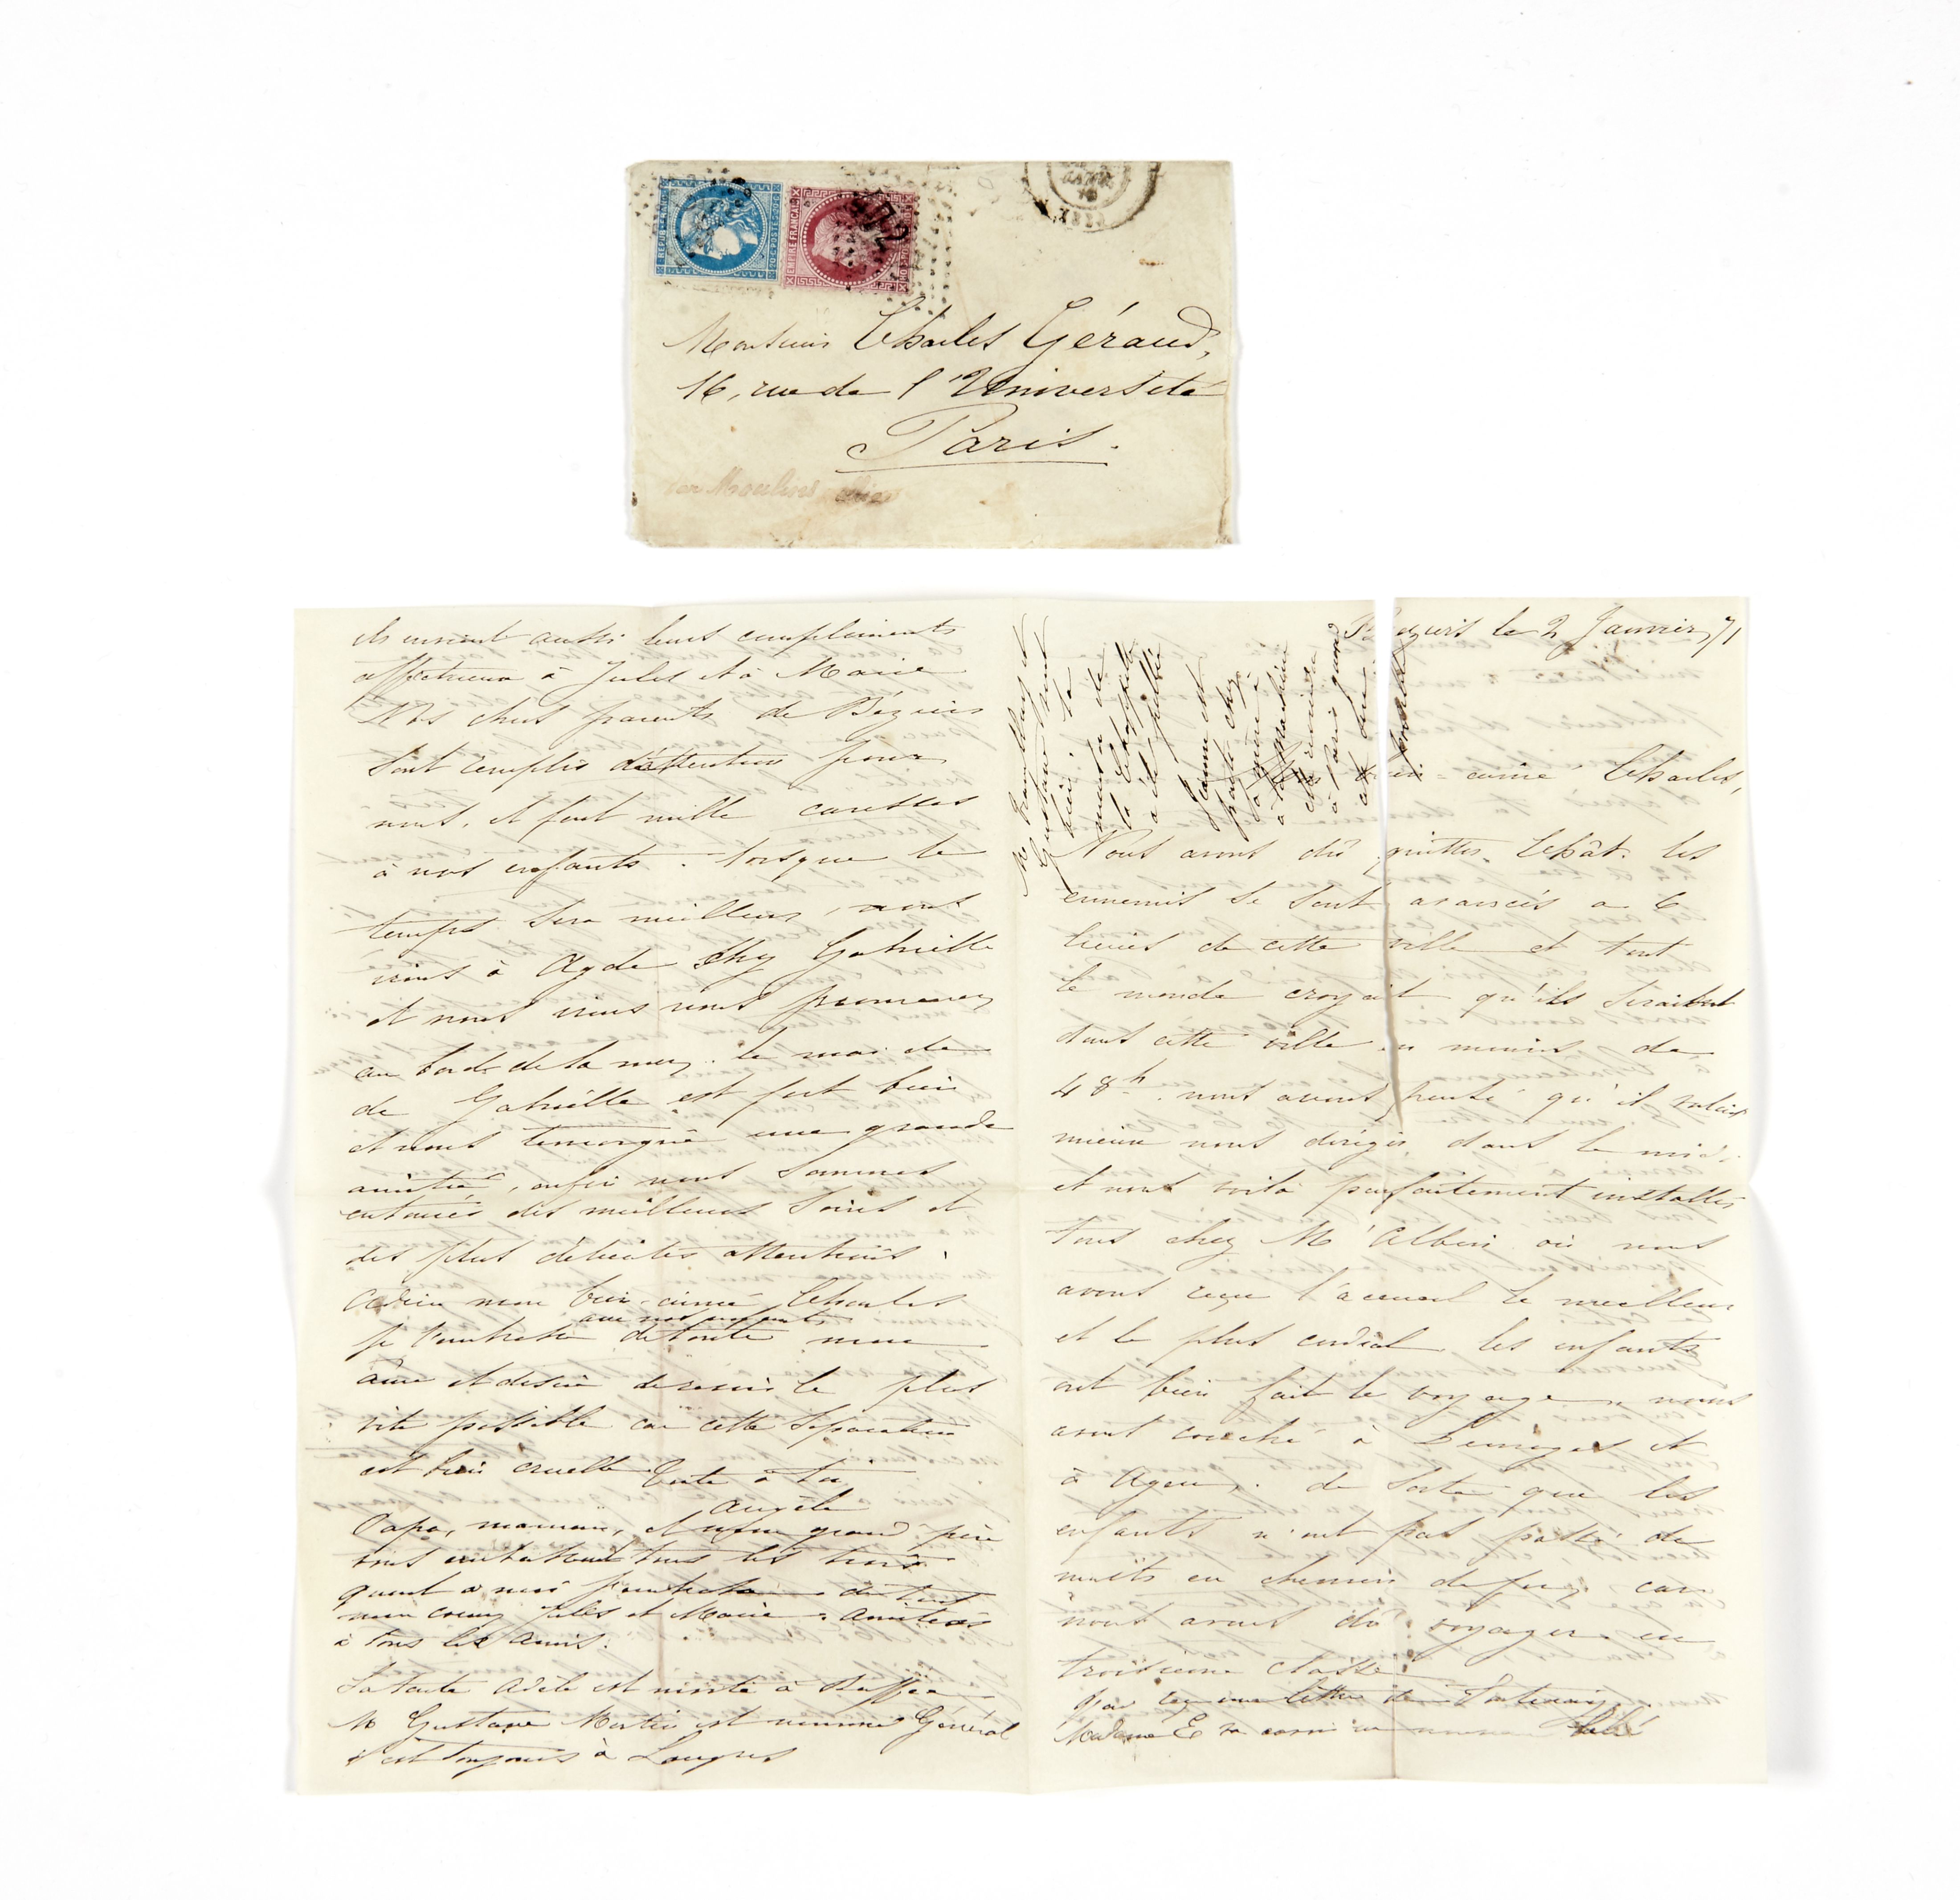 REPUB. FRANC.
20 C POSTES 20 C
EMPIRE FRANÇAIS
Monsieur Charles Géraud,
16, rue de l'Université
Paris.
par Moulins
Béziers le 2 Janvier 71
bien-aimé Charles,
Nous avons dû quitter Chât. les
ennemis se sont avancés à 6
lieues de cette ville et tout
le monde croyait qu'ils seraient
dans cette ville en moins de
48h. nous avons pensé qu'il valait
mieux nous diriger dans le midi
et nous voilà parfaitement installés
tous chez Mr Albin où nous
avons reçu l'accueil le meilleur
et le plus cordial les enfants
ont bien fait le voyage nous
avons couché à Limoges et
à Agen. de sorte que les
enfants n'ont pas passé de
nuits en chemin de fer, car
nous avons dû voyager en
troisième classe.
J'ai reçu une lettre de
Madame E
ils envoient aussi leurs compliments
affectueux à Jules et à Marie
Nos chers parents de Béziers
sont remplis d'attention pour
nous, et font mille caresses
à nos enfants. lorsque le
temps sera meilleur, nous
irons à Agde chez Gabrielle
et nous irons nous promener
au bord de la mer. le mari de
de Gabrielle est fort bien
et nous témoigne une grande
amitié, enfin nous sommes
entourés des meilleurs soins et
des plus délicates attentions.
Adieu mon bien-aimé Charles
je t'embrasse de toute mon
âme et désire te revoir le plus
vite possible car cette séparation
est bien cruelle Toute à toi
Angèle
Papa, maman, et mon grand père
vous embrassent tous les trois
quant à moi j'embrasse de tout
mon coeur Jules et Marie. Amitiés
à tous les amis.
La tante Adèle est à
Mr Gustave est nommé Général
il est toujours à Langres